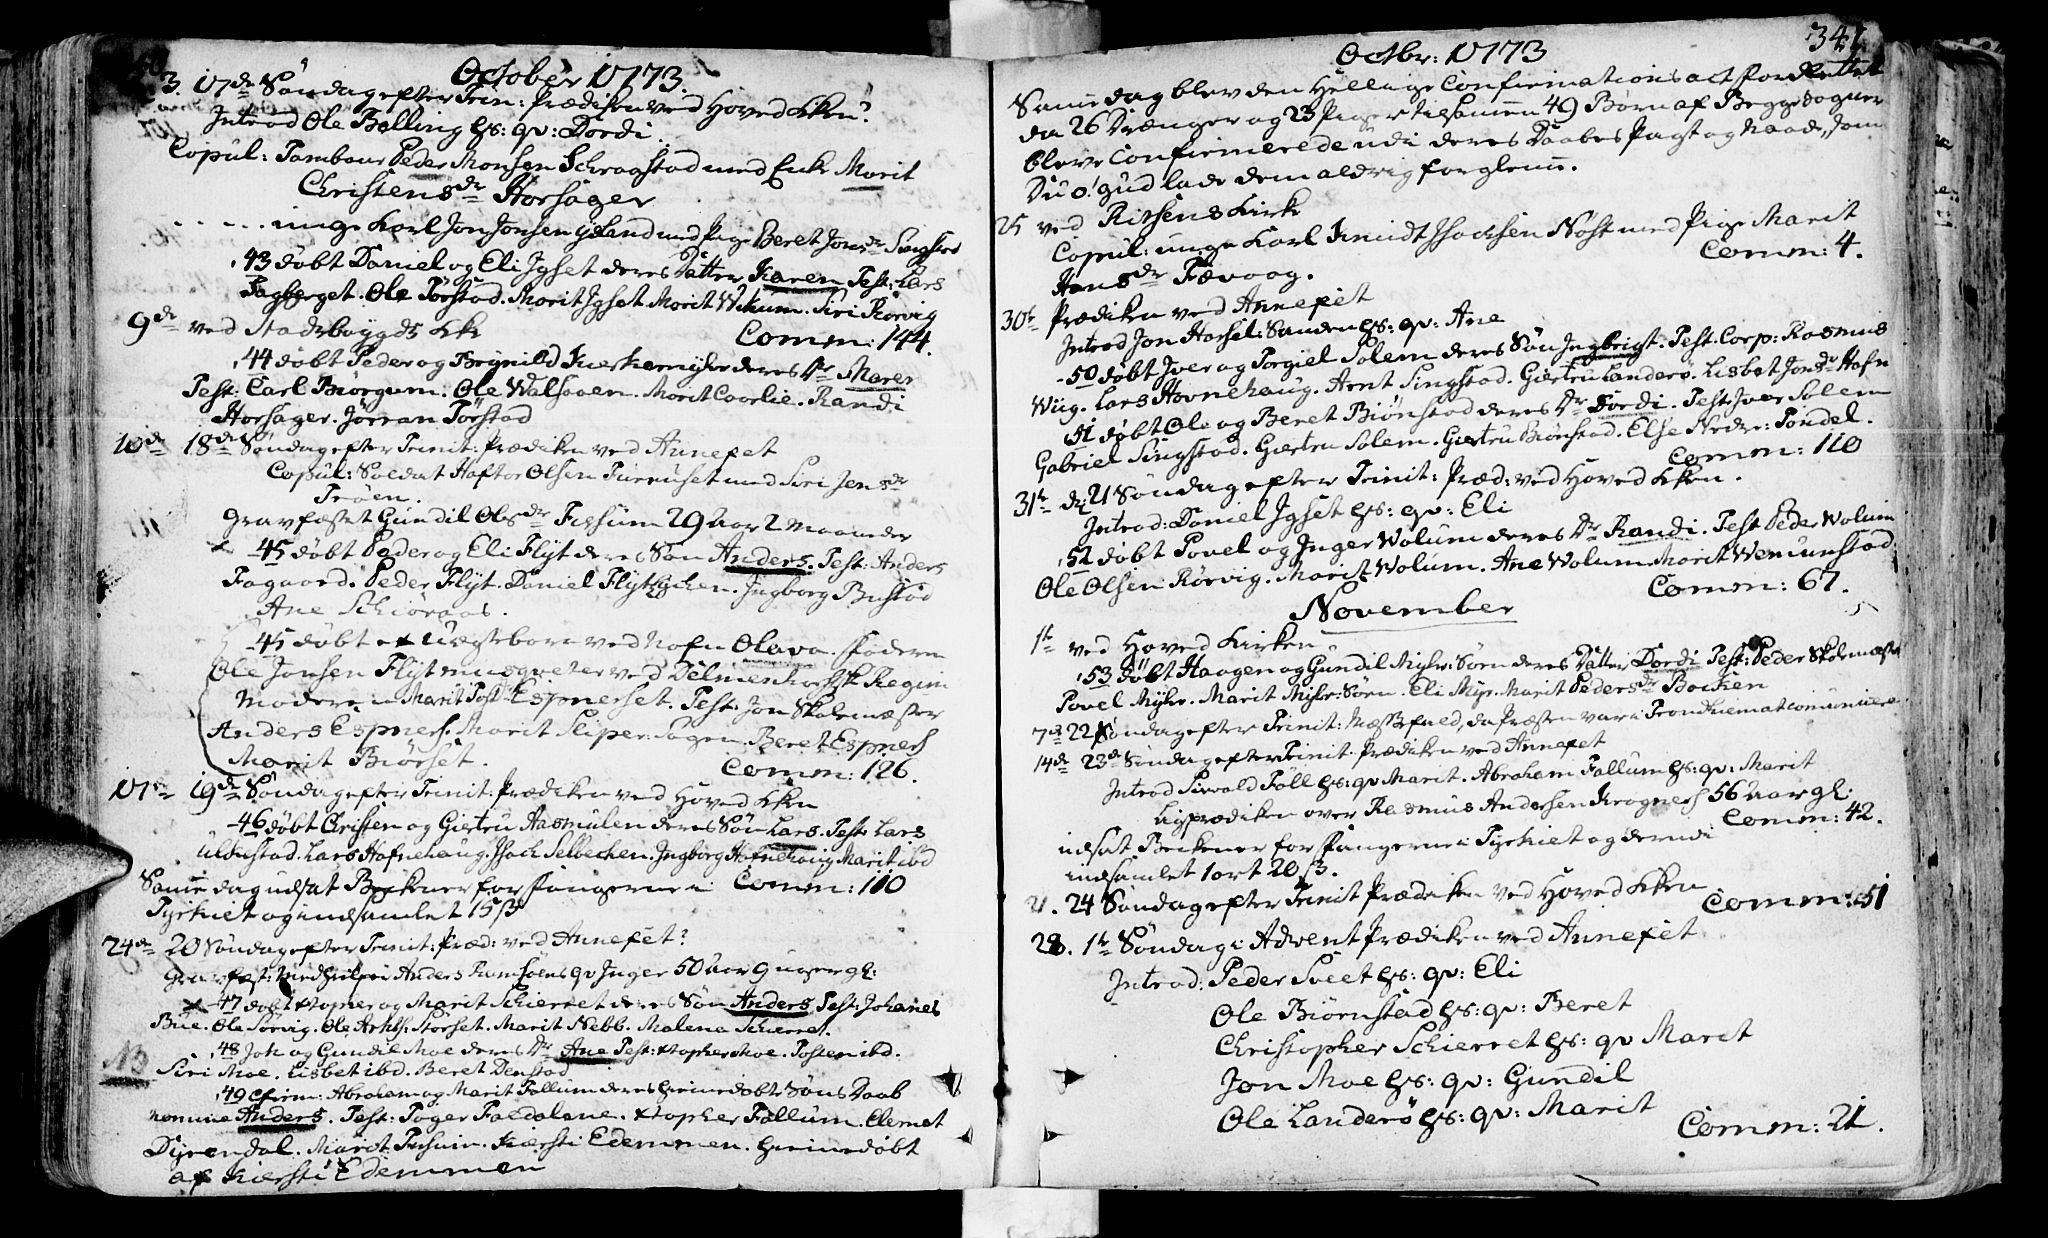 October 1773.
3. 17de Søndag efter Trin: Prædiken ved Hoved Kken?
Introd Ole Balling hs: qv: Dordi
Copul: Tambour Peder Monsen Schrogstad med Enke Marit
Christensdr Horsager
unge Karl Jon Jonsen Ysland med Pige Beret Jonsdr Singstad
43 døbt Daniel og Eli Igset deres Datter Karen Test: Lars
Fagberget. Ole Torstad. Marit Igset. Marit Wikum. Siri Rørvig
9de ved Stadsboygds Kke Comm: 144.
44 døbt Peder og Brynild deres Dr Maren
Test: Carl Børgum. Ole Walsaaen. Marit Randi
Horsager. Jørran Torstad
10de 18de Søndag efter Trinit: Prædiken ved Annexet
Copul: Soldat Haftor Olsen Furruset med Siri Jensdr
Trøen.
Gravfæstet Gundil Olsdr Fissum 29 Aar 2 Maaneder
45 døbt Peder og Eli Flyt deres Søn Anders. Test: Anders
Fagaard. Peder Flyt. Daniel Flyt Ingborg Bustad
Ane Schiøraas.
45 døbt et Uægteborn ved Nafn Olava. faderen
Ole Jonsen Flyt Musqueter ved Delmenhorstsk Regim
Moderen Marit Espnerset. Test: Jon Skolemæster
Anders Espners. Marit Sliper. Beret Espners
Marit Biørset. Comm: 126.
17de 19de Søndag efter Trinit: Prædiken ved Hoved Kken
46 døbt Christen og Giertru Aasmulen deres Søn Lars. Test: Lars
Ulstestad. Lars Hafnehaug. Isach Selbechen. Ingborg Hafnehaug Marit ibd
Samme dag udsat Bekener for fangerne i Comm: 110
Tyrkiet og indsamlet 15 ß
24de 20 Søndag efter Trinit: Præd: ved Annexet?
Gravfæst: Anders Ramsøens qv Inger 50 Aar 9 uger gl:
47 døbt xtopher og Marit Schierret deres Søn Anders Test: Johanes
Bue. Ole Sørvig. Ole Størset. Marit Nebb. Malena Schierret.
NB 48 Joh og Gundil Moe deres Dr Ane Test: xtopher Moe. Tosten ibd.
Siri Moe. Lisbet ibd. Beret Denstad
49 Cfirm: Abraham og Marit Fallum deres hiemedøbt Søns Daab
nomine Anders. Test: Toger Fardalane. xtopher Fallum. Clemet
Dyrendal. Marit Kiersti Edemmen. hiemedøbt
af Kiersti Edemmen
Octbr: 1773
341
Samme dag blev den Hellige Confirmations act forrettet
da 26 Drænger og 23 Piger tilsamen 49 Børn af Begge Sogner
bleve Confirmerede udi deres Daabes Pagt og Naade, som
Du o! Gud lade dem aldrig forglemme.
25 ved Rissens Kirke
Copul: unge Karl Knudt Isachsen Nøst med Pige Marit
Hansdr Fævaag. Comm: 4.
30te Prædiken ved Annexet
Introd Jon Horsel: Sanden hs: qv: Ane
50 døbt Iver og Torgiel Solem deres Søn Ingbrigt. Test: Corp: Rasmus
Wiig. Lars Hovnehaug. Arnt Singstad. Giertru Landerø. Lisbet Jonsdr Hafn
51 døbt Ole og Beret Biørnstad deres Dr Dordi. Test: Iver Solem
Gabriel Singstad. Giertru Solem. Giertru Biørnstad. Else Nedre: Tøndel.
Comm: 110
31te d: 21 Søndag efter Trinit: Præd: ved Hoved Kken.
Introd: Daniel Igset hs: qv: Eli
52 døbt Povel og Inger Wolum deres Dr Randi. Test Peder Wolum
Ole Olsen Rørvig. Marit Wolum. Ane Wolum. Marit Wemundstad
Comm: 67.
November
1te ved Hoved Kirken
53 døbt Haagen og Gundil Myhr: Sørn deres Datter Dordi Test: Peder Skolemæst
Povel Myhr. Marit Myhr: Sørn. Eli Myr. Marit Pedersdr Backen
7de 22 Søndag efter Trinit: Messefald, da Præsten var i Trondhiem at comunicere
14de 23de Søndag efter Trinit. Prædiken ved Annexet
Introd Siwald Fall hs: qv Marit. Abraham Fallum hs: qv: Marit
Ligprædiken over Rasmus Andersen Krogness 56 Aar gl.
Comm: 42.
udsat Beckener for fangerne i Tyrkiet og derudi
indsamlet 1 ort 20 ß.
21. 24 Søndag efter Trinit Prædiken ved Hoved Kken Comm: 51
28. 1te Søndag i Advent Prædiken ved Annexet
Introd: Peder Sveet hs: qv: Eli
Ole Biørnstad hs: qv: Beret
Christopher Schierret hs: qv Marit
Jon Moe hs: qv: Gundil
Ole Landerø hs: qv: Marit
Comm: 21.